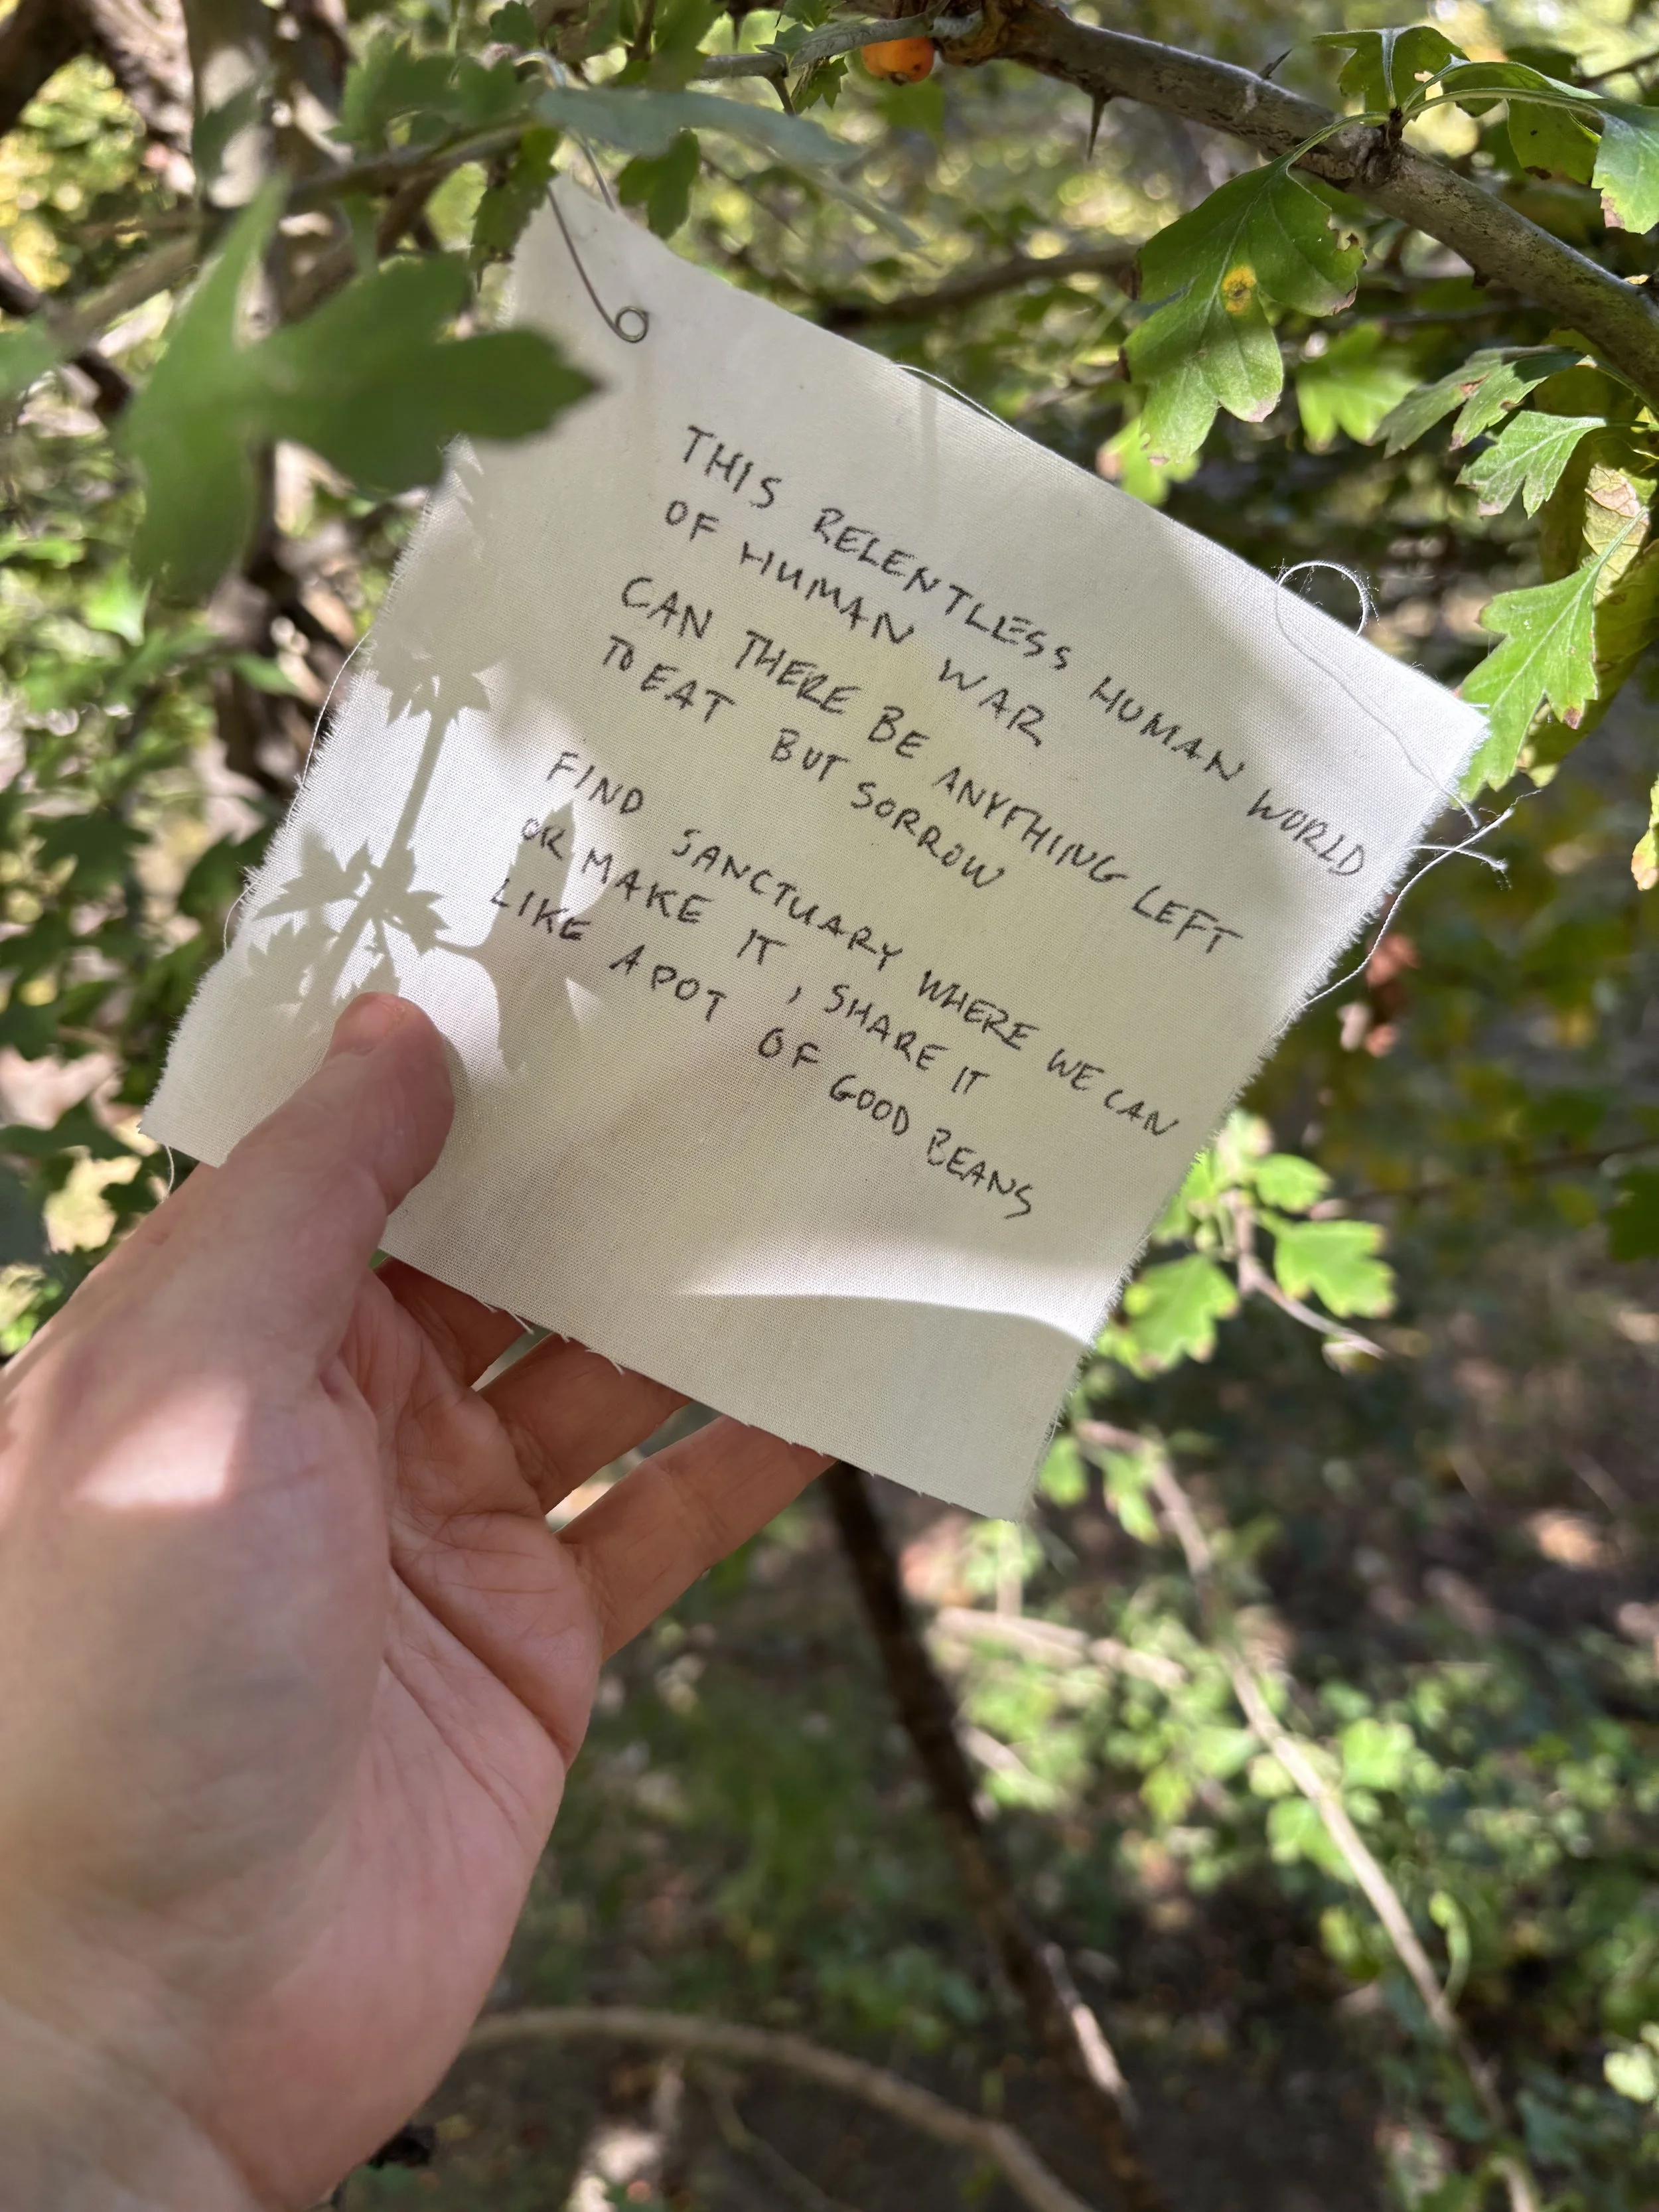 THIS RELENTLESS HUMAN WORLD
OF HUMAN WAR
CAN THERE BE ANYTHING LEFT
TO EAT BUT SORROW
FIND SANCTUARY WHERE WE CAN
OR MAKE IT, SHARE IT
LIKE A POT OF GOOD BEANS